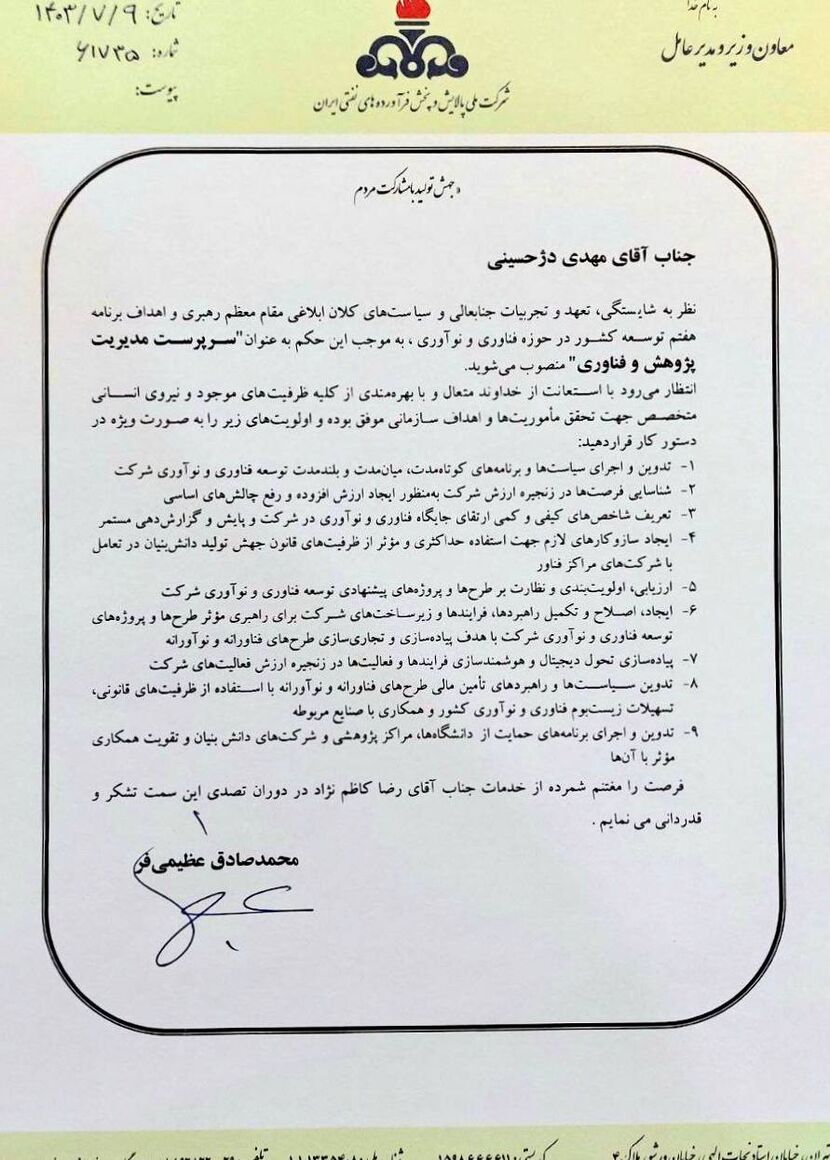 به نام خدا
معاون وزیر و مدیر عامل
تاریخ: ۱۴۰۳/۷/۹
شماره: ۶۱۷۳۵
پیوست:
شرکت ملی پالایش و پخش فرآورده های نفتی ایران
«جهش تولید با مشارکت مردم
جناب آقای مهدی دژحسینی
نظر به شایستگی، تعهد و تجربیات جنابعالی و سیاست‌های کلان ابلاغی مقام معظم رهبری و اهداف برنامه
هفتم توسعه کشور در حوزه فناوری و نوآوری ، به موجب این حکم به عنوان"سرپرست مدیریت
پژوهش و فناوری" منصوب می‌شوید.
انتظار می‌رود با استعانت از خداوند متعال و با بهره‌مندی از کلیه ظرفیت‌های موجود و نیروی انسانی
متخصص جهت تحقق مأموریت‌ها و اهداف سازمانی موفق بوده و اولویت‌های زیر را به صورت ویژه در
دستور کار قراردهید:
۱- تدوین و اجرای سیاست‌ها و برنامه‌های کوتاه‌مدت، میان‌مدت و بلندمدت توسعه فناوری و نوآوری شرکت
۲- شناسایی فرصت‌ها در زنجیره ارزش شرکت به‌منظور ایجاد ارزش افزوده و رفع چالش‌های اساسی
۳- تعریف شاخص‌های کیفی و کمی ارتقای جایگاه فناوری و نوآوری در شرکت و پایش و گزارش‌دهی مستمر
۴- ایجاد سازوکارهای لازم جهت استفاده حداکثری و مؤثر از ظرفیت‌های قانون جهش تولید دانش‌بنیان در تعامل
با شرکت‌های مراکز فناور
۵- ارزیابی، اولویت‌بندی و نظارت بر طرح‌ها و پروژه‌های پیشنهادی توسعه فناوری و نوآوری شرکت
۶- ایجاد، اصلاح و تکمیل راهبردها، فرایندها و زیرساخت‌های شرکت برای راهبری مؤثر طرح‌ها و پروژه‌های
توسعه فناوری و نوآوری شرکت با هدف پیاده‌سازی و تجاری‌سازی طرح‌های فناورانه و نوآورانه
۷- پیاده‌سازی تحول دیجیتال و هوشمندسازی فرایندها و فعالیت‌ها در زنجیره ارزش فعالیت‌های شرکت
۸- تدوین سیاست‌ها و راهبردهای تأمین مالی طرح‌های فناورانه و نوآورانه با استفاده از ظرفیت‌های قانونی،
تسهیلات زیست‌بوم فناوری و نوآوری کشور و همکاری با صنایع مربوطه
۹- تدوین و اجرای برنامه‌های حمایت از دانشگاه‌ها، مراکز پژوهشی و شرکت‌های دانش بنیان و تقویت همکاری
مؤثر با آن‌ها
فرصت را مغتنم شمرده از خدمات جناب آقای رضا کاظم نژاد در دوران تصدی این سمت تشکر و
قدردانی می نمایم .
محمدصادق عظیمی‌فر
تهران، خیابان استاد نجات الهی، خیابان ورشو، پلاک ۴